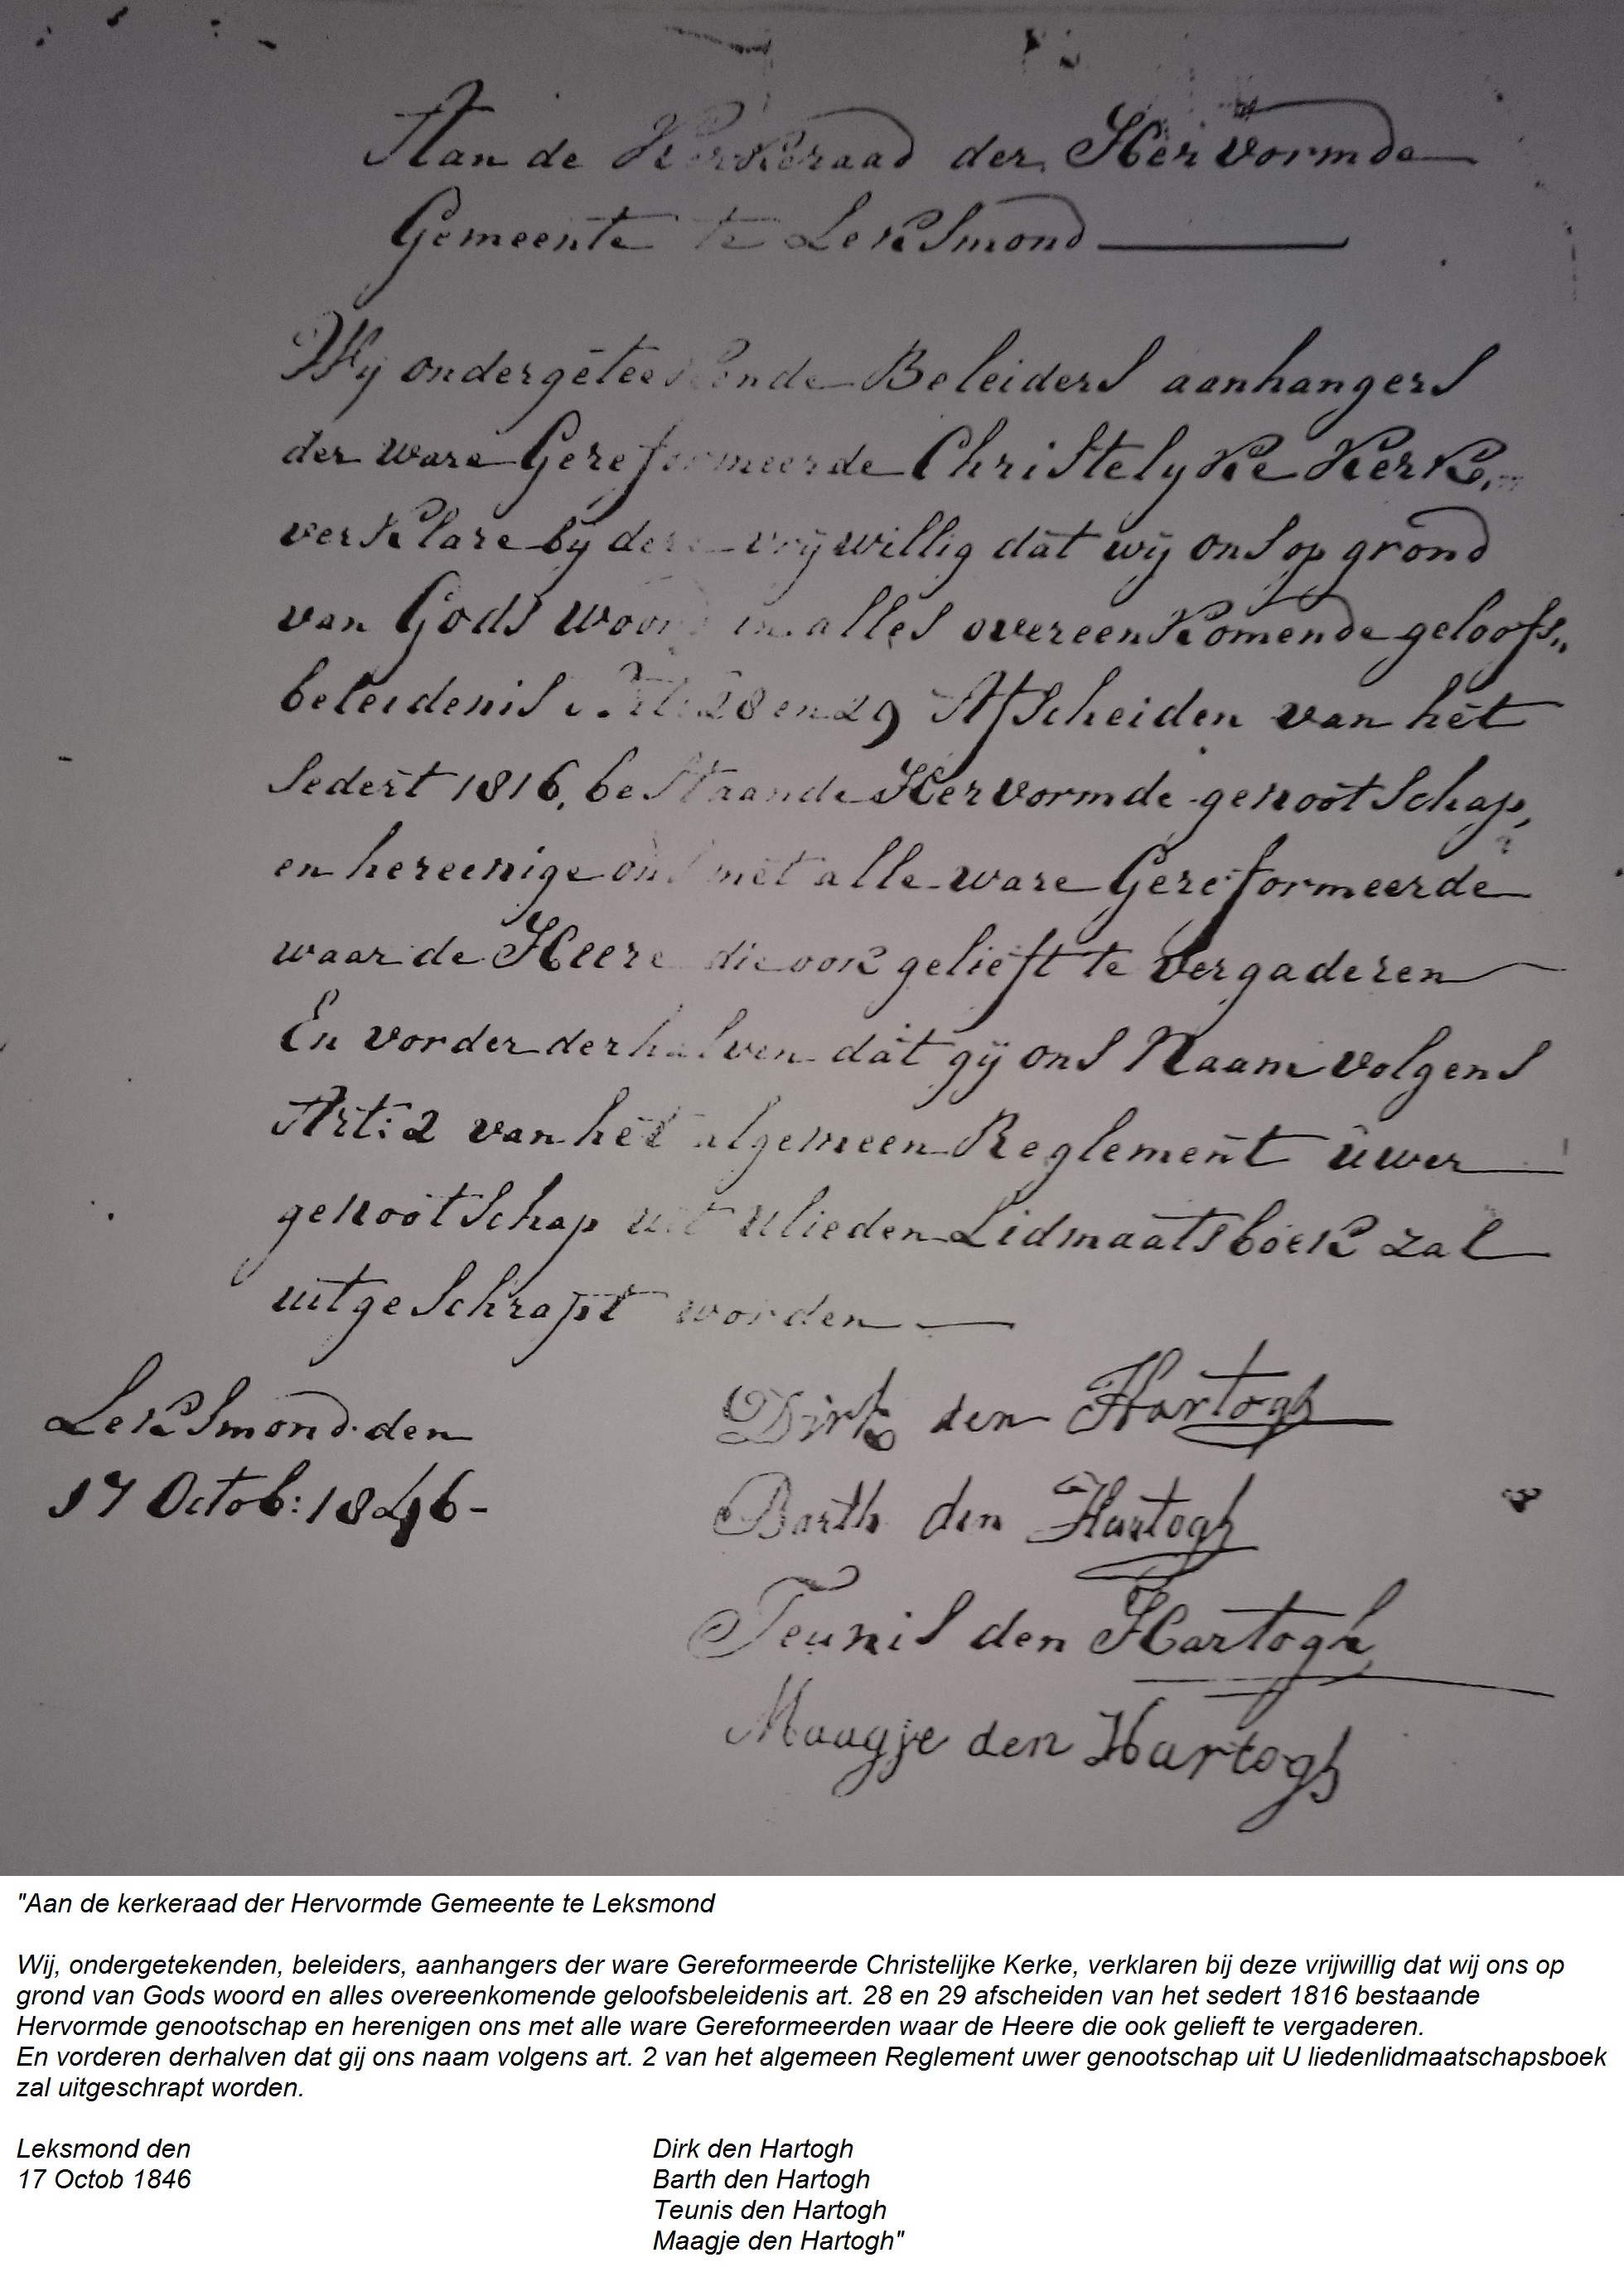 Aan de Kerkeraad der Hervormde
Gemeente te Leksmond
Wij ondergeteekende Beleiders aanhangers
der ware Gereformeerde Christelyke Kerke,
verklare bij deze vrijwillig dat wij ons op grond
van Gods woord in alles overeenkomende geloofs„
beleidenis Art: 28 en 29 Afscheiden van het
sedert 1816, bestaande Hervormde genootschap,
en hereenige ons met alle ware Gereformeerde
waar de Heere die ook gelieft te vergaderen
En vorder derhalven dat gij ons Naam volgens
Art: 2 van het algemeen Reglement uwer
genootschap uit ulieden Lidmaatsboek zal
uitgeschrapt worden
Leksmond den
17 Octob: 1846-
Dirk den Hartogh
Barth den Hartogh
Teunis den Hartogh
Maagje den Hartogh
"Aan de kerkeraad der Hervormde Gemeente te Leksmond
Wij, ondergetekenden, beleiders, aanhangers der ware Gereformeerde Christelijke Kerke, verklaren bij deze vrijwillig dat wij ons op
grond van Gods woord en alles overeenkomende geloofsbeleidenis art. 28 en 29 afscheiden van het sedert 1816 bestaande
Hervormde genootschap en herenigen ons met alle ware Gereformeerden waar de Heere die ook gelieft te vergaderen.
En vorderen derhalven dat gij ons naam volgens art. 2 van het algemeen Reglement uwer genootschap uit U liedenlidmaatschapsboek
zal uitgeschrapt worden.
Leksmond den
17 Octob 1846
Dirk den Hartogh
Barth den Hartogh
Teunis den Hartogh
Maagje den Hartogh"